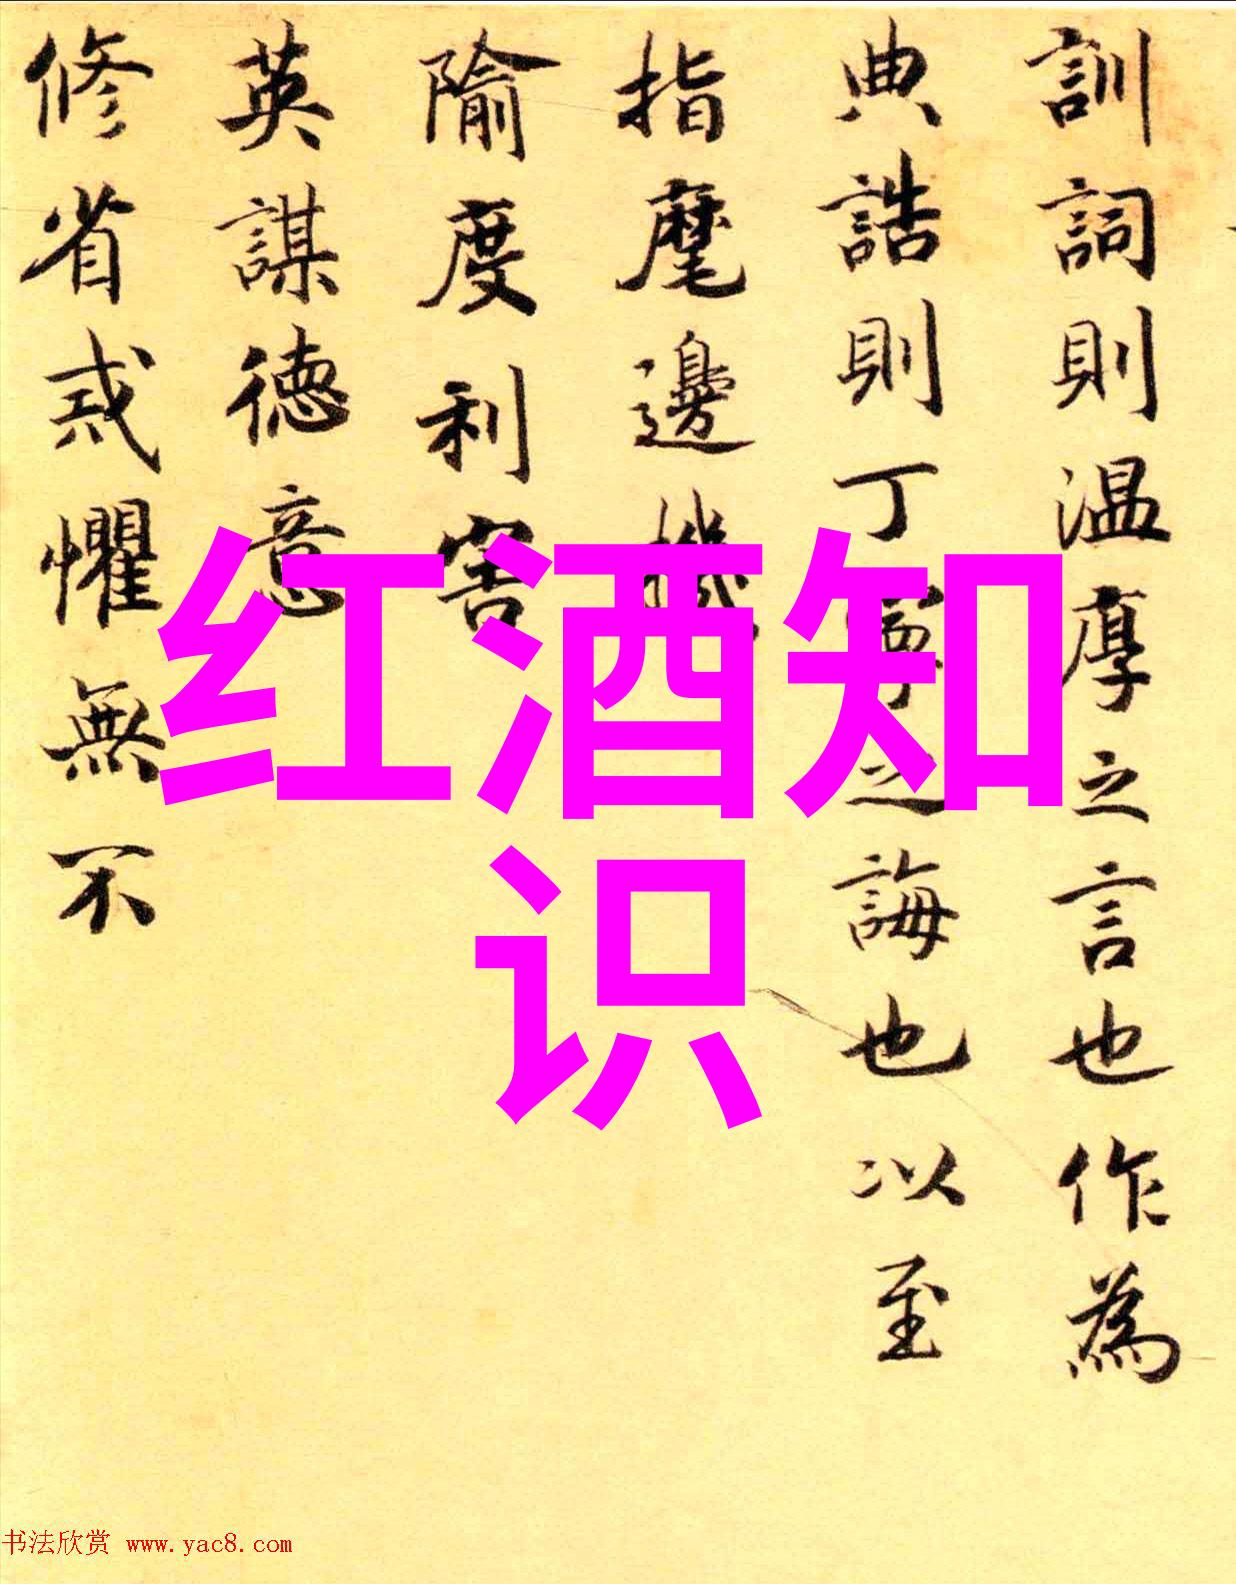 訓詞則温厚之言也作為
典誥則丁寧之誨也以至
指麾邊機
隃度利害
英謀德意
修省戒懼無不
红酒知
识
书法欣赏 www.yac8.com